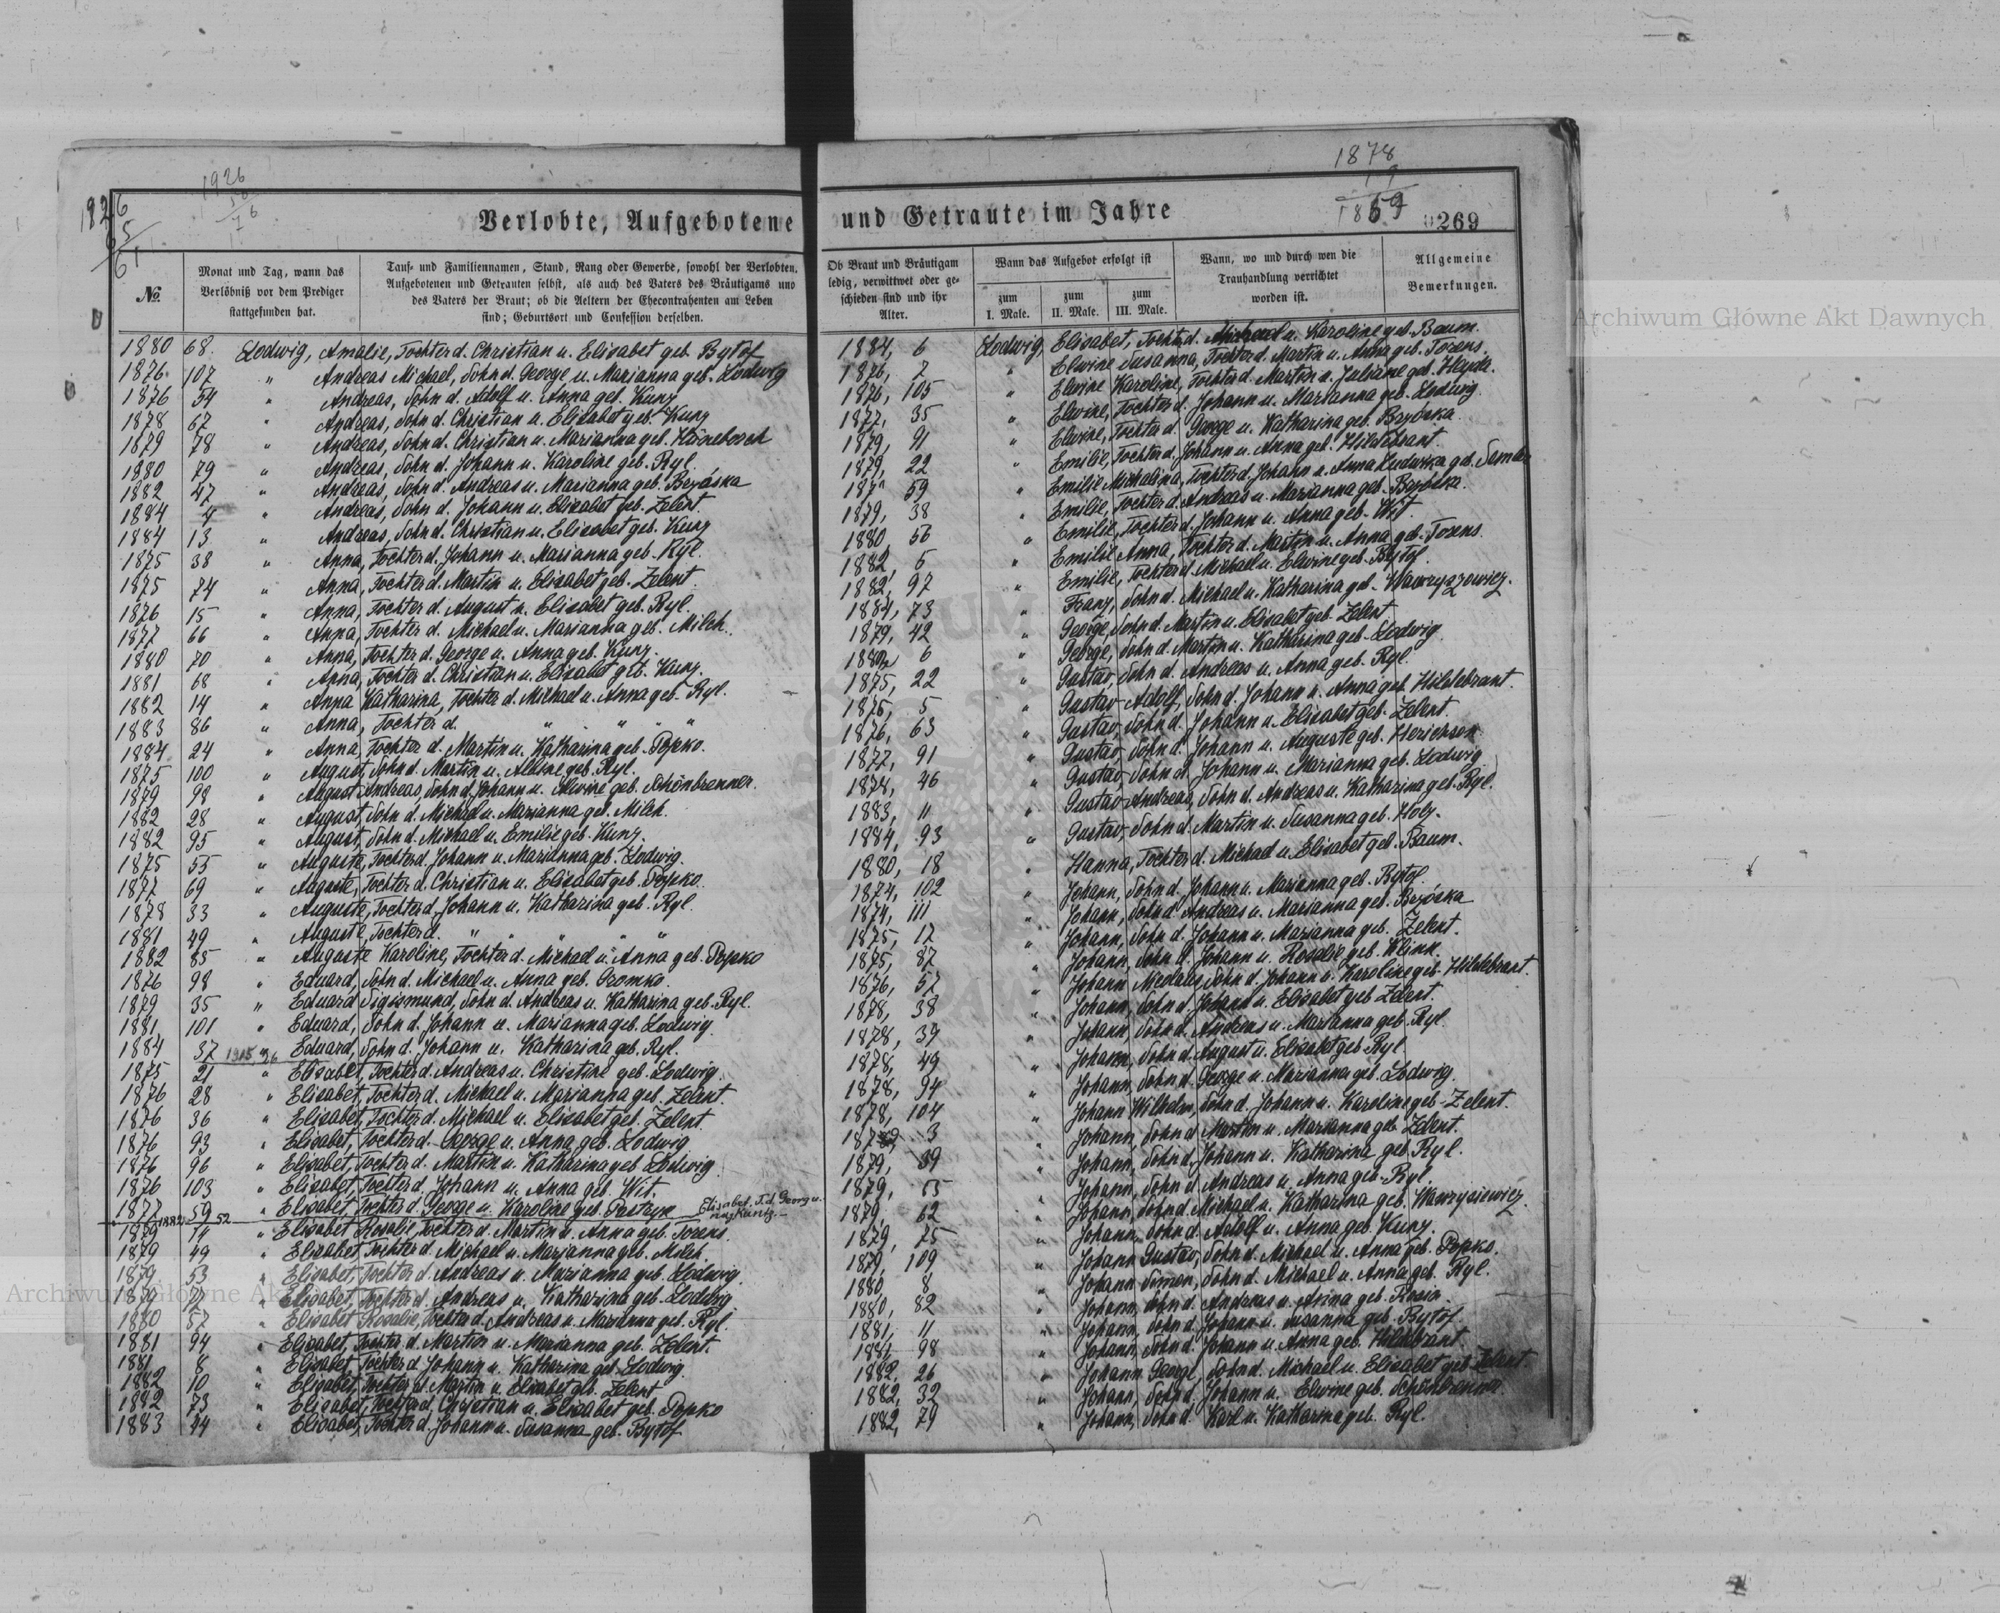 1926
50
76
1926
65
61
Verlobte, Aufgebotene
No.
Monat und Tag, wann das
Verlöbniß vor dem Prediger
stattgefunden hat.
Tauf- und Familiennamen, Stand, Rang oder Gewerbe, sowohl der Verlobten,
Aufgebotenen und Getrauten selbst, als auch des Vaters des Bräutigams und
des Vaters der Braut; ob die Aeltern der Ehecontrahenten am Leben
sind; Geburtsort und Confession derselben.
1880 68. Lodwig, Amalie, Tochter d. Christian u. Elisabet geb. Bytof
1876 107 " Andreas Michael, Sohn d. George u. Marianna geb. Lodwig
1876 54 " Andreas, Sohn d. Adolf u. Anna geb. Kunz
1878 67 " Andreas, Sohn d. Christian u. Elisabet geb. Kunz
1879 78 " Andreas, Sohn d. Christian u. Marianna geb.
1880 79 " Andreas, Sohn d. Johann u. Karoline geb. Ryl.
1882 47 " Andreas, Sohn d. Andreas u. Marianna geb. Brzóska
1884 4 " Andreas, Sohn d. Johann u. Elisabet geb. Zelent.
1884 13 " Andreas, Sohn d. Christian u. Elisabet geb. Kunz
1875 38 " Anna, Tochter d. Johann u. Marianna geb. Ryl.
1875 74 " Anna, Tochter d. Martin u. Elisabet geb. Zelent.
1876 15 " Anna, Tochter d. August u. Elisabet geb. Ryl.
1877 66 " Anna, Tochter d. Michael u. Marianna geb. Milch.
1880 70 " Anna, Tochter d. George u. Anna geb. Kunz.
1881 68 " Anna, Tochter d. Christian u. Elisabet geb. Kunz.
1882 14 " Anna Katharina, Tochter d. Michael u. Anna geb. Ryl.
1883 86 " Anna, Tochter d. " " " "
1884 24 " Anna, Tochter d. Martin u. Katharina geb. Popko.
1875 100 " August, Sohn d. Martin u. Albine geb. Ryl.
1879 98 " August Andreas Sohn d. Johann u. Elwine geb. Schönbrenner.
1882 28 " August, Sohn d. Michael u. Marianna geb. Milch.
1882 95 " August, Sohn d. Michael u. Emilie geb. Kunz.
1875 55 " Auguste, Tochter d. Johann u. Marianna geb. Lodwig.
1877 69 " Auguste, Tochter d. Christian u. Elisabet geb. Popko.
1878 33 " Auguste, Tochter d. Johann u. Katharina geb. Ryl.
1881 49 " Auguste, Tochter d. " " " " "
1882 85 " Auguste Karoline, Tochter d. Michael u. Anna geb. Popko
1876 98 " Eduard, Sohn d. Michael u. Anna geb. Gromko.
1879 35 " Eduard Sigismund, Sohn d. Andreas u. Katharina geb. Ryl.
1881 101 " Eduard, Sohn d. Johann u. Marianna geb. Lodwig.
1884 37 Eduard, Sohn d. Johann u. Katharina geb. Ryl.
1875 21 " Elisabet, Tochter d. Andreas u. Christine geb. Lodwig.
1876 28 " Elisabet, Tochter d. Michael u. Marianna geb. Zelent.
1876 36 " Elisabet, Tochter d. Michael u. Elisabet geb. Zelent.
1876 93 " Elisabet, Tochter d. George u. Anna geb. Lodwig
1876 96 " Elisabet, Tochter d. Martin u. Katharina geb Lodwig.
1876 103 " Elisabet, Tochter d. Johann u. Anna geb. Wit.
1877 59 " Elisabet, Tochter d. George u. Karoline geb. Elisabet. T. d. Georg u.
1882 52
1879 14 " Elisabet Rosalie, Tochter d. Martin u. Anna geb. Torens.
1879 49 " Elisabet, Tochter d. Michael u. Marianna geb. Milch.
1879 53 " Elisabet, Tochter d. Andreas u. Marianna geb. Lodwig.
Elisabet, Tochter d. Andreas u. Katharina geb. Lodwig.
1880 57 " Elisabet Rosalie, Tochter d. Andreas u. Marianna geb. Ryl.
1881 94 " Elisabet, Tochter d. Martin u. Marianna geb. Zelent.
1881 8 " Elisabet, Tochter d. Johann u. Katharina geb. Lodwig.
1882 10 " Elisabet, Tochter d. Martin u. Elisabet geb. Zelent
1882 73 " Elisabet, Tochter d. Christian u. Elisabet geb. Popko
1883 44 " Elisabet, Tochter d. Johann u. Susanna geb. Bytof
1878
19
1859
und Getraute im Jahre
269
Ob Braut und Bräutigam
ledig, verwittwet oder ge-
schieden sind und ihr
Alter.
Wann das Aufgebot erfolgt ist
zum
I. Male.
zum
II. Male.
zum
III. Male.
Wann, wo und durch wen die
Trauhandlung verrichtet
worden ist.
Allgemeine
Bemerkungen.
1884, 6 Lodwig, Elisabet, Tochter d. Michael u. Karoline geb. Baum.
1876, 7 " Elwine Susanna, Tochter d. Martin u. Anna geb. Torens.
1876, 105 " Elwine Karoline, Tochter d. Martin u. Juliane geb.
1877, 35 " Elwine, Tochter d. Johann u. Marianna geb. Lodwig.
1879, 91 " Elwine, Tochter d. George u. Katharina geb. Brzóska.
1879, 22 " Emilie, Tochter d. Johann u. Anna geb. Hildebrant.
59 " Emilie Michalina, Tochter d. Johann u. Anna Ludwika geb.
1879, 38 " Emilie, Tochter d. Andreas u. Marianna geb. Brzóska.
1880 56 " Emilie, Tochter d. Johann u. Anna geb. Wit
1882, 5 " Emilie Anna, Tochter d. Martin u. Anna geb. Torens.
1882, 97 " Emilie, Tochter d. Michael u. Elwine geb. Bytof.
1884, 73 " Franz, Sohn d. Michael u. Katharina geb.
1879, 42 " George, Sohn d. Martin u. Elisabet geb. Zelent.
6 " George, Sohn d. Martin u. Katharina geb. Lodwig.
1875, 22 " Gustav, Sohn d. Andreas u. Anna geb. Ryl.
1876, 5 " Gustav Adolf, Sohn d. Johann u. Anna geb. Hildebrant.
1876, 63 " Gustav, Sohn d. Johann u. Elisabet geb. Zelent.
1877, 91 " Gustav, Sohn d. Johann u. Auguste geb.
1878, 46 " Gustav, Sohn d. Johann u. Marianna geb. Lodwig
1883, 11 " Gustav Andreas, Sohn d. Andreas u. Katharina geb. Ryl.
1884, 93 " Gustav, Sohn d. Martin u. Susanna geb. Holz.
1880, 18 " Hanna, Tochter d. Michael u. Elisabet geb. Baum.
1874, 102 " Johann, Sohn d. Johann u. Marianna geb. Bytof
1874, 111 " Johann, Sohn d. Andreas u. Marianna geb. Brzóska
1875, 17 " Johann, Sohn d. Johann u. Marianna geb. Zelent.
1875, 87 " Johann, Sohn d. Johann u. Rosalie geb. Klinn.
1876, 57 " Johann Sohn d. Johann u. Karoline geb. Hildebrant.
1878, 38 " Johann, Sohn d. Johann u. Elisabet geb Zelent.
1878, 39 " Johann, Sohn d. Andreas u. Marianna geb. Ryl
1878, 49 " Johann, Sohn d. August u. Elisabet geb. Ryl
1878, 94 " Johann, Sohn d. George u. Marianna geb. Lodwig.
1878, 104 " Johann Wilhelm, Sohn d. Johann u. Karoline geb. Zelent.
3 " Johann, Sohn d. Martin u. Marianna geb. Zelent.
1879, 39 " Johann, Sohn d. Johann u. Katharina geb. Ryl.
1879, " Johann, Sohn d. Andreas u. Anna geb. Ryl
1879, 62 " Johann, Sohn d. Michael u. Katharina geb.
1879, 75 " Johann, Sohn d. Adolf u. Anna geb. Kunz.
1879, 109 " Johann Gustav, Sohn d. Michael u. Anna geb. Popko.
1880, 8 " Johann Simon, Sohn d. Michael u. Anna geb. Ryl.
1880, 82 " Johann, Sohn d. Andreas u. Anna geb.
1881, 11 " Johann, Sohn d. Johann u. Susanna geb. Bytof.
98 " Johann, Sohn d. Johann u. Anna geb. Hildebrant
1882, 26 " Johann George, Sohn d. Michael u. Elisabet geb. Zelent.
1882, 32 " Johann, Sohn d. Johann u. Elwine geb. Schönbrenner.
1882, 79 " Johann, Sohn d. Karl u. Katharina geb. Ryl.
Archiwum Główne Akt Dawnych
Archiwum Główne Akt